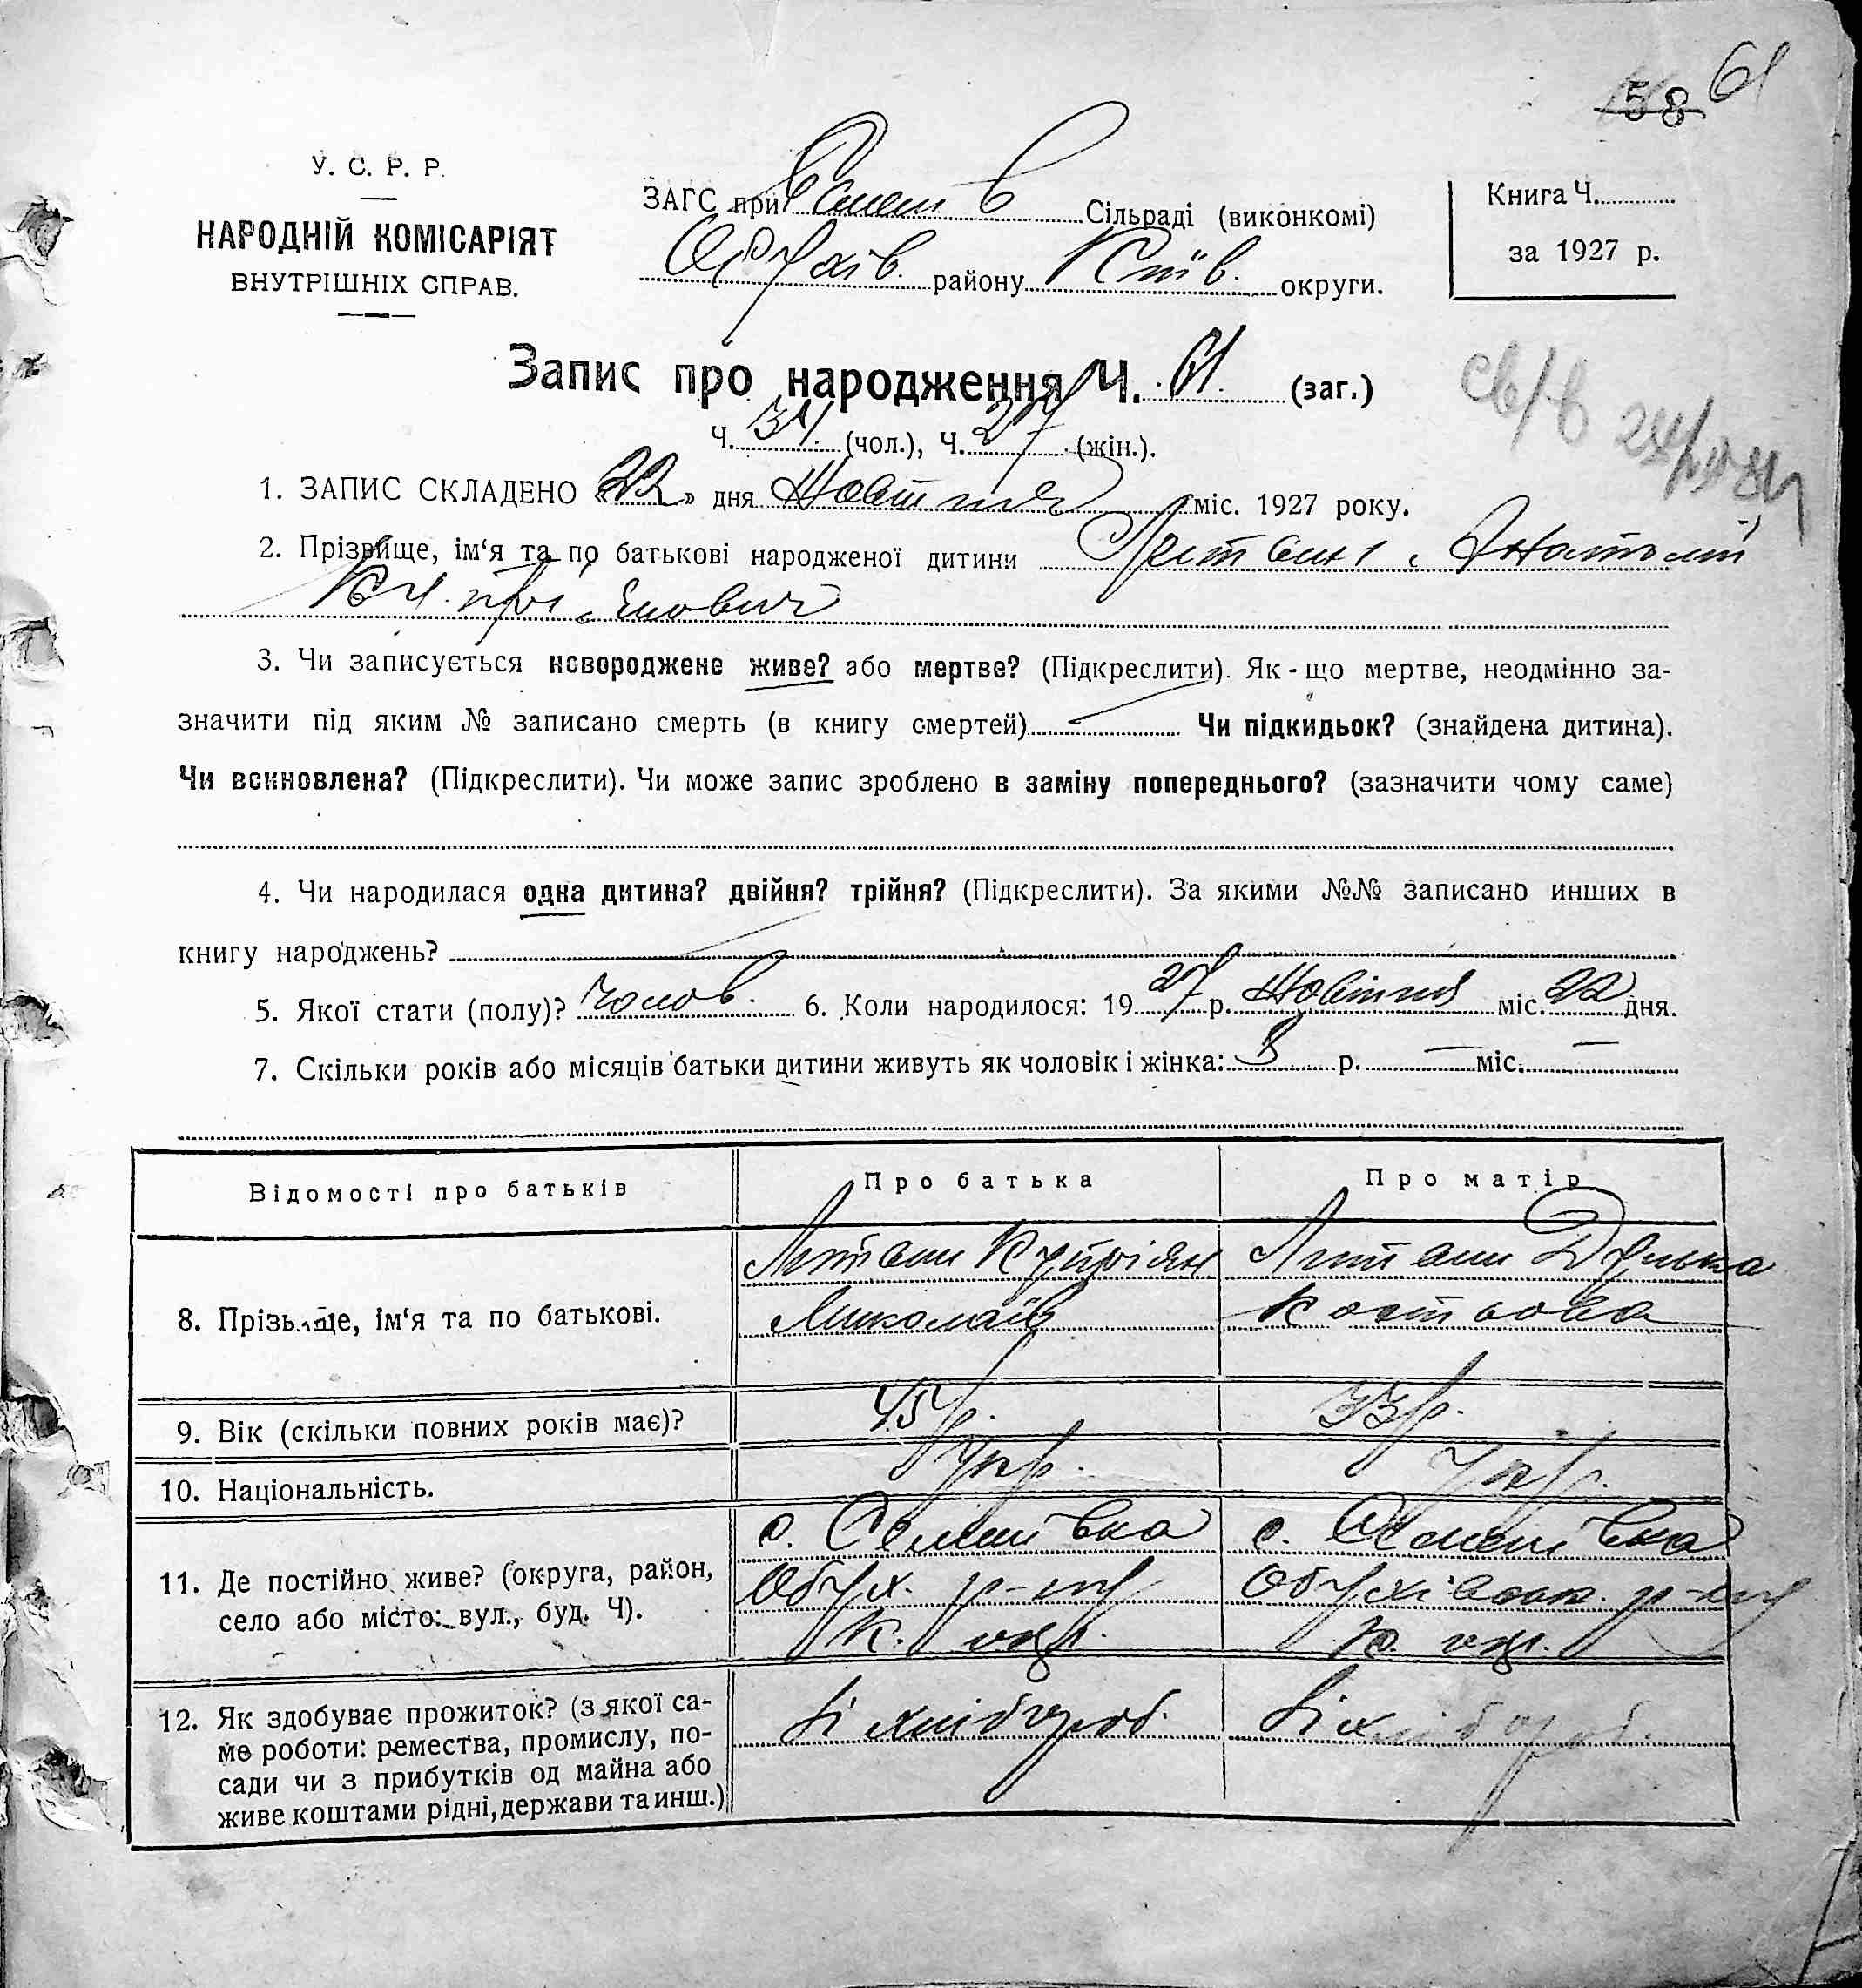 58 61
У. С. Р. Р.
НАРОДНІЙ КОМІСАРІЯТ
ВНУТРІШНІХ СПРАВ.
ЗАГС при Сільраді (виконкомі)
Обухів. району Київ. округи.
Книга Ч.
за 1927 р.
Запис про народження Ч. 61. (заг.)
Ч. 34 (чол.), Ч. 27 (жін.).
1. ЗАПИС СКЛАДЕНО «22» дня Жовтня міс. 1927 року.
2. Прізвище, ім‘я та по батькові народженої дитини Анатолій
3. Чи записується новороджене живе? або мертве? (Підкреслити). Як-що мертве, неодмінно за-
значити під яким № записано смерть (в книгу смертей) Чи підкидьок? (знайдена дитина).
Чи всиновлена? (Підкреслити). Чи може запис зроблено в заміну попереднього? (зазначити чому саме)
4. Чи народилася одна дитина? двійня? трійня? (Підкреслити). За якими №№ записано инших в
книгу народжень?
5. Якої стати (полу)? Чолов. 6. Коли народилося: 19 27 р. Жовтня міс. 22 дня.
7. Скільки років або місяців батьки дитини живуть як чоловік і жінка: 3 р. — міс. —
Відомості про батьків Про батька Про матір
8. Прізвище, ім‘я та по батькові.
Литвин Купріян
Миколаїв
Литвин
9. Вік (скільки повних років має)? 45 р. 33 р.
10. Національність. Укр. Укр.
11. Де постійно живе? (округа, район,
село або місто: вул., буд. Ч).
с. Семенівка
Обух. р-ну
К. окр.
с. Семенівка
Обухівськ. р-ну
К. окр.
12. Як здобуває прожиток? (з якої са-
ме роботи: ремества, промислу, по-
сади чи з прибутків од майна або
живе коштами рідні, держави та инш.)
хлібороб.
хлібороб.